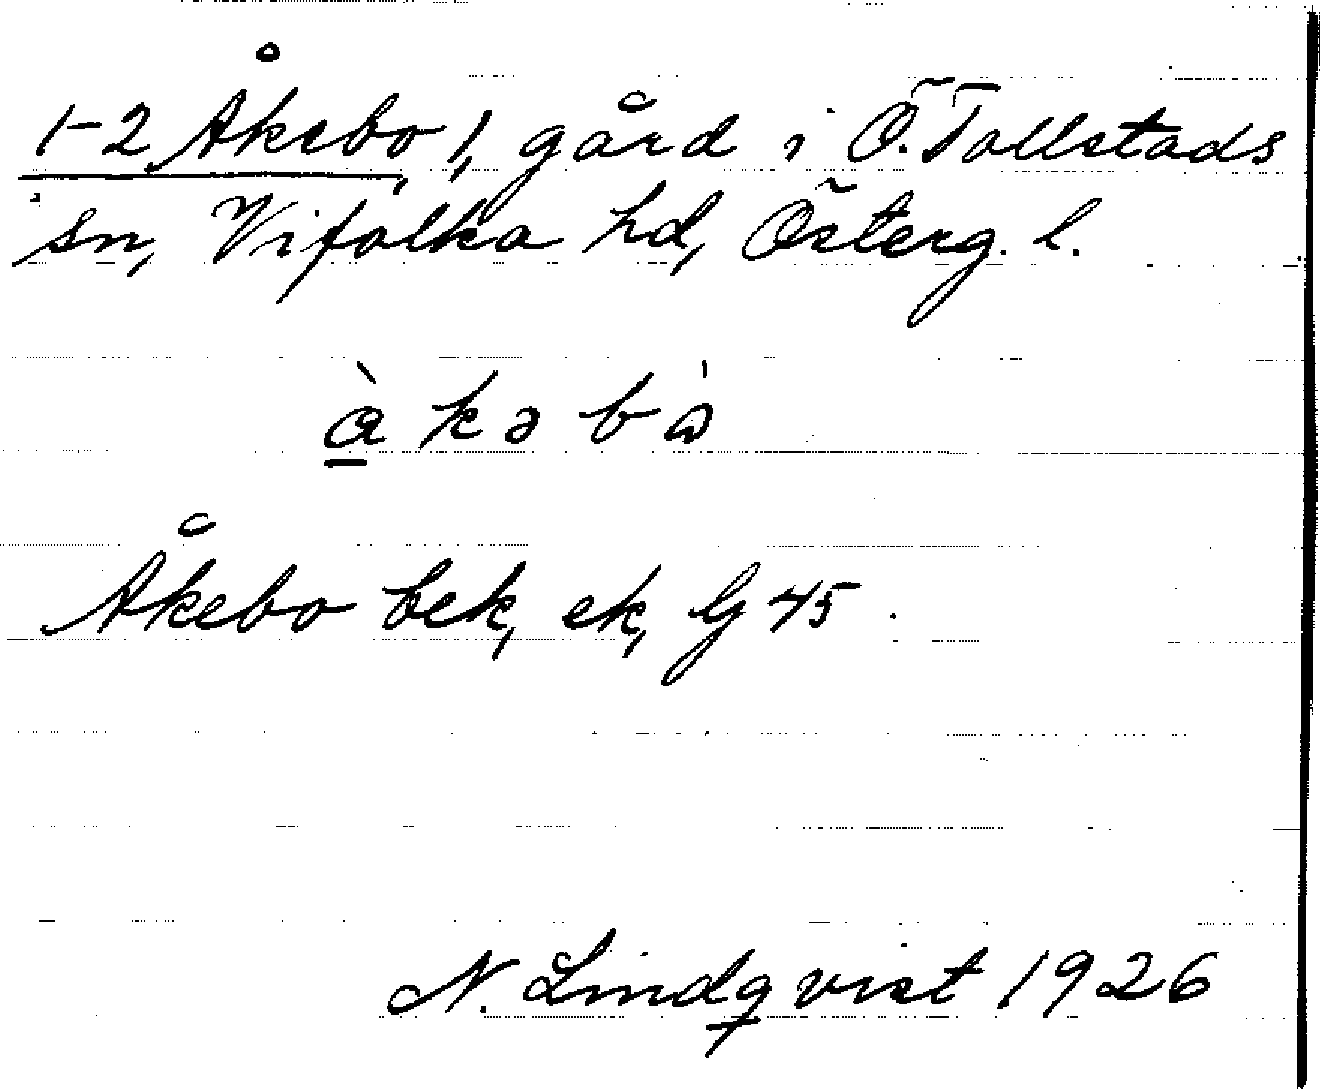 1-2 Åkebo, 1, gård i Ö. Tollstads
sn, Vifolka hd, Österg. l.
à k ə b ὼ
Åkebo bek, ek, G 45.
N. Lindqvist 1926